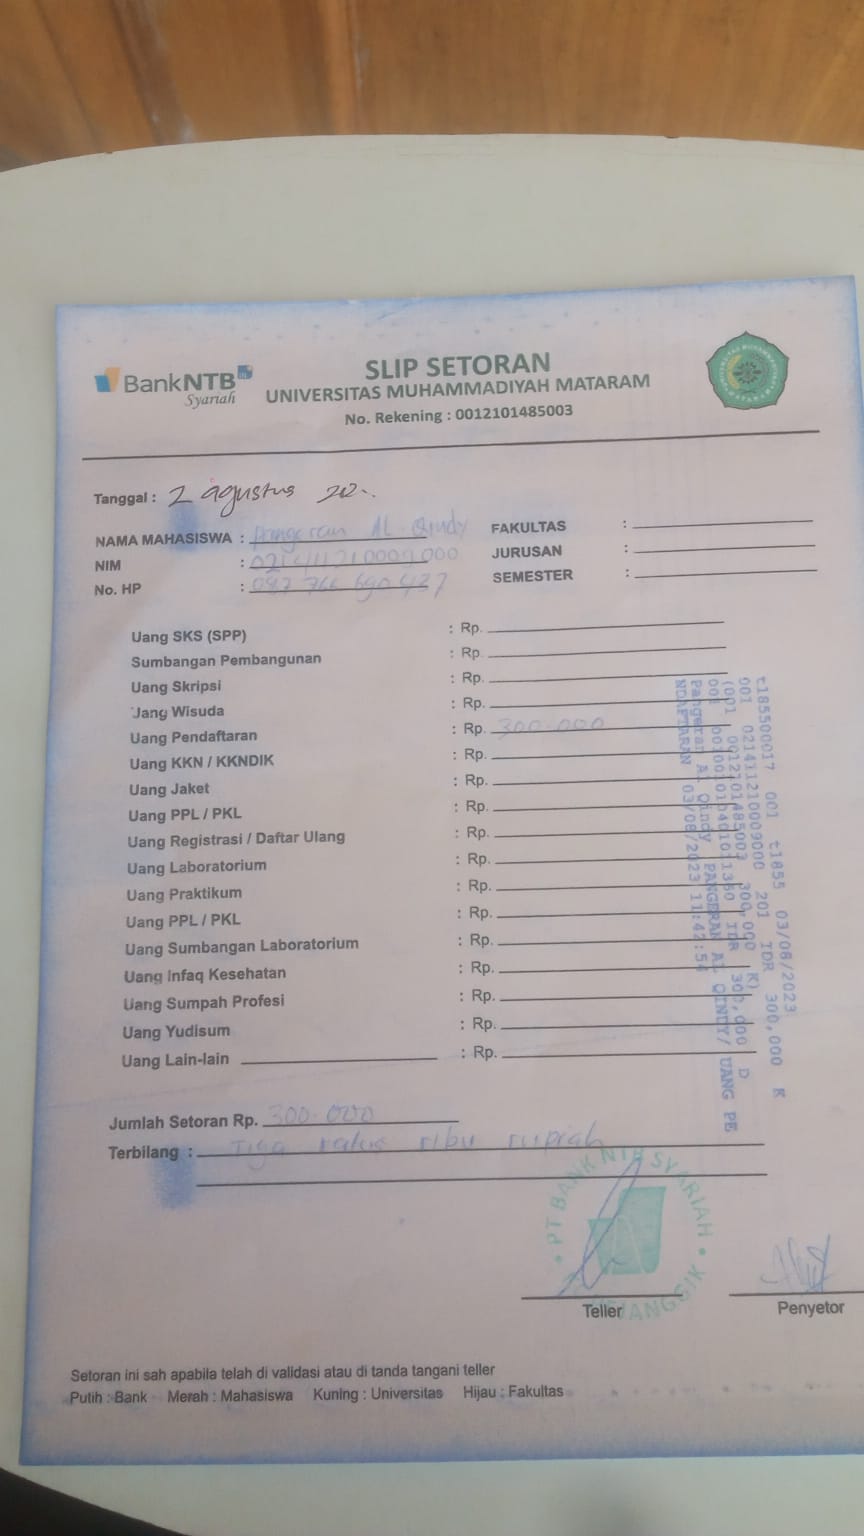 BankNTB
Syariah
SLIP SETORAN
UNIVERSITAS MUHAMMADIYAH MATARAM
No. Rekening : 0012101485003
Tanggal : 2 agustus 20..
NAMA MAHASISWA : Pangeran AL Qindy
NIM :
No. HP :
FAKULTAS :
JURUSAN :
SEMESTER :
Uang SKS (SPP) : Rp.
Sumbangan Pembangunan : Rp.
Uang Skripsi : Rp.
Uang Wisuda : Rp.
Uang Pendaftaran : Rp. 300.000
Uang KKN / KKNDIK : Rp.
Uang Jaket : Rp.
Uang PPL / PKL : Rp.
Uang Registrasi / Daftar Ulang : Rp.
Uang Laboratorium : Rp.
Uang Praktikum : Rp.
Uang PPL / PKL : Rp.
Uang Sumbangan Laboratorium : Rp.
Uang Infaq Kesehatan : Rp.
Uang Sumpah Profesi : Rp.
Uang Yudisum : Rp.
Uang Lain-lain : Rp.
t185500017 001 t1855 03/08/2023
001 021411210009000 201 IDR 300,000 K
(001 0012101485003 300,000 K)
001 IDR 300,000 D
Pangeran Al Qindy PANGERAN AL QINDY/ UANG PE
NDAFTARAN 03/08/2023 11:42:54
Jumlah Setoran Rp. 300.000
Terbilang : Tiga ratus ribu rupiah
PT BANK NTB SYARIAH
Teller
Penyetor
Setoran ini sah apabila telah di validasi atau di tanda tangani teller
Putih : Bank Merah : Mahasiswa Kuning : Universitas Hijau : Fakultas